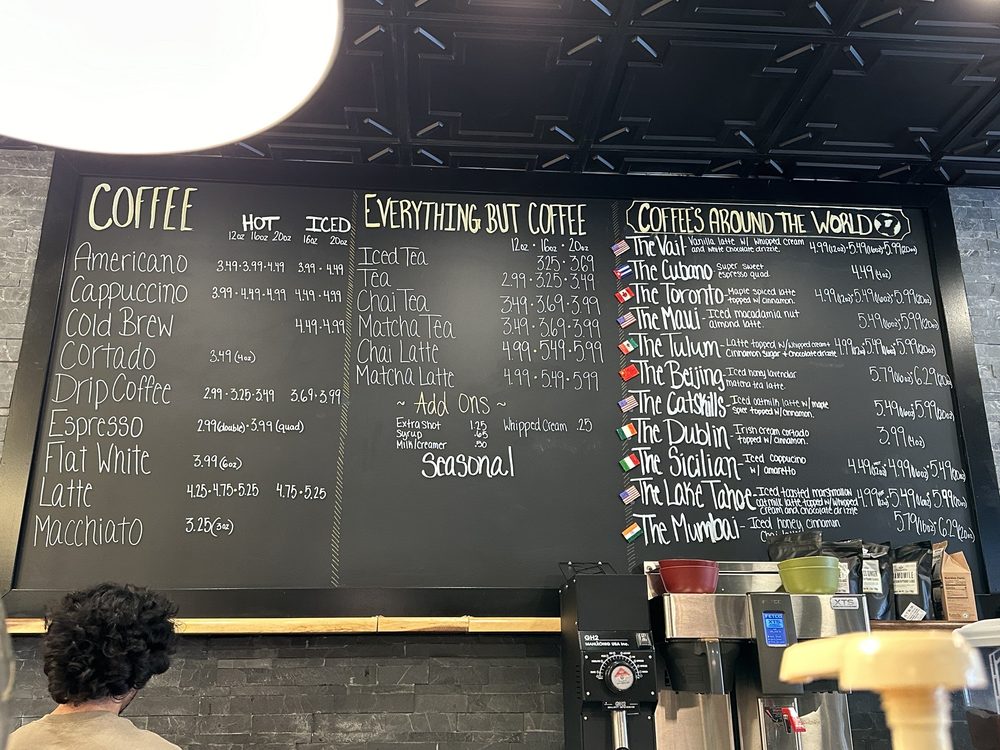 COFFEE
HOT ICED
12oz 16oz 20oz 16oz 20oz
Americano 3.49·3.99·4.49 3.99·4.49
Cappuccino 3.99·4.49·4.99 4.49·4.99
Cold Brew 4.49·4.99
Cortado 3.49(4oz)
Drip Coffee 2.99·3.25·3.49 3.69·3.99
Espresso 2.99(double)·3.99(quad)
Flat White 3.99(6oz)
Latte 4.25·4.75·5.25 4.75·5.25
Macchiato 3.25(3oz)
EVERYTHING BUT COFFEE
12oz · 16oz · 20oz
Iced Tea 3.25·3.69
Tea 2.99·3.25·3.49
Chai Tea 3.49·3.69·3.99
Matcha Tea 3.49·3.69·3.99
Chai Latte 4.99·5.49·5.99
Matcha Latte 4.99·5.49·5.99
~ Add Ons ~
Extra Shot 1.25 Whipped Cream .25
Syrup .65
Milk/Creamer .50
Seasonal
COFFEE'S AROUND THE WORLD
The Vail- Vanilla latte w/ whipped cream 4.99(12oz)·5.49(16oz)·5.99(20oz)
and white chocolate drizzle.
The Cubano- Super sweet 4.49(4oz)
espresso quad
The Toronto- Maple spiced latte 4.99(12oz)·5.49(16oz)·5.99(20oz)
topped w/ cinnamon.
The Maui- Iced macadamia nut 5.49(16oz)·5.99(20oz)
almond latte.
The Tulum- Latte topped w/ whipped cream + 4.99(12oz)·5.49(16oz)·5.99(20oz)
Cinnamon Sugar + Chocolate drizzle
The Beijing- Iced honey lavendar 5.79(16oz)·6.29(20oz)
matcha tea latte.
The Catskills- Iced oatmilk latte w/ maple 5.49(16oz)·5.99(20oz)
spice topped w/ cinnamon.
The Dublin- Irish cream cortado 3.99(4oz)
topped w/ cinnamon.
The Sicilian- Iced cappuccino 4.49(12oz)·4.99(16oz)·5.49(20oz)
w/ amaretto
The Lake Tahoe- Iced toasted marshmallow 4.99(12oz)·5.49(16oz)·5.99(20oz)
oatmilk latte topped w/ whipped
cream and chocolate drizzle
The Mumbai- Iced honey, cinnamon 5.79(16oz)·6.29(20oz)
GH2
XTS
FETCO
XTS
GH2